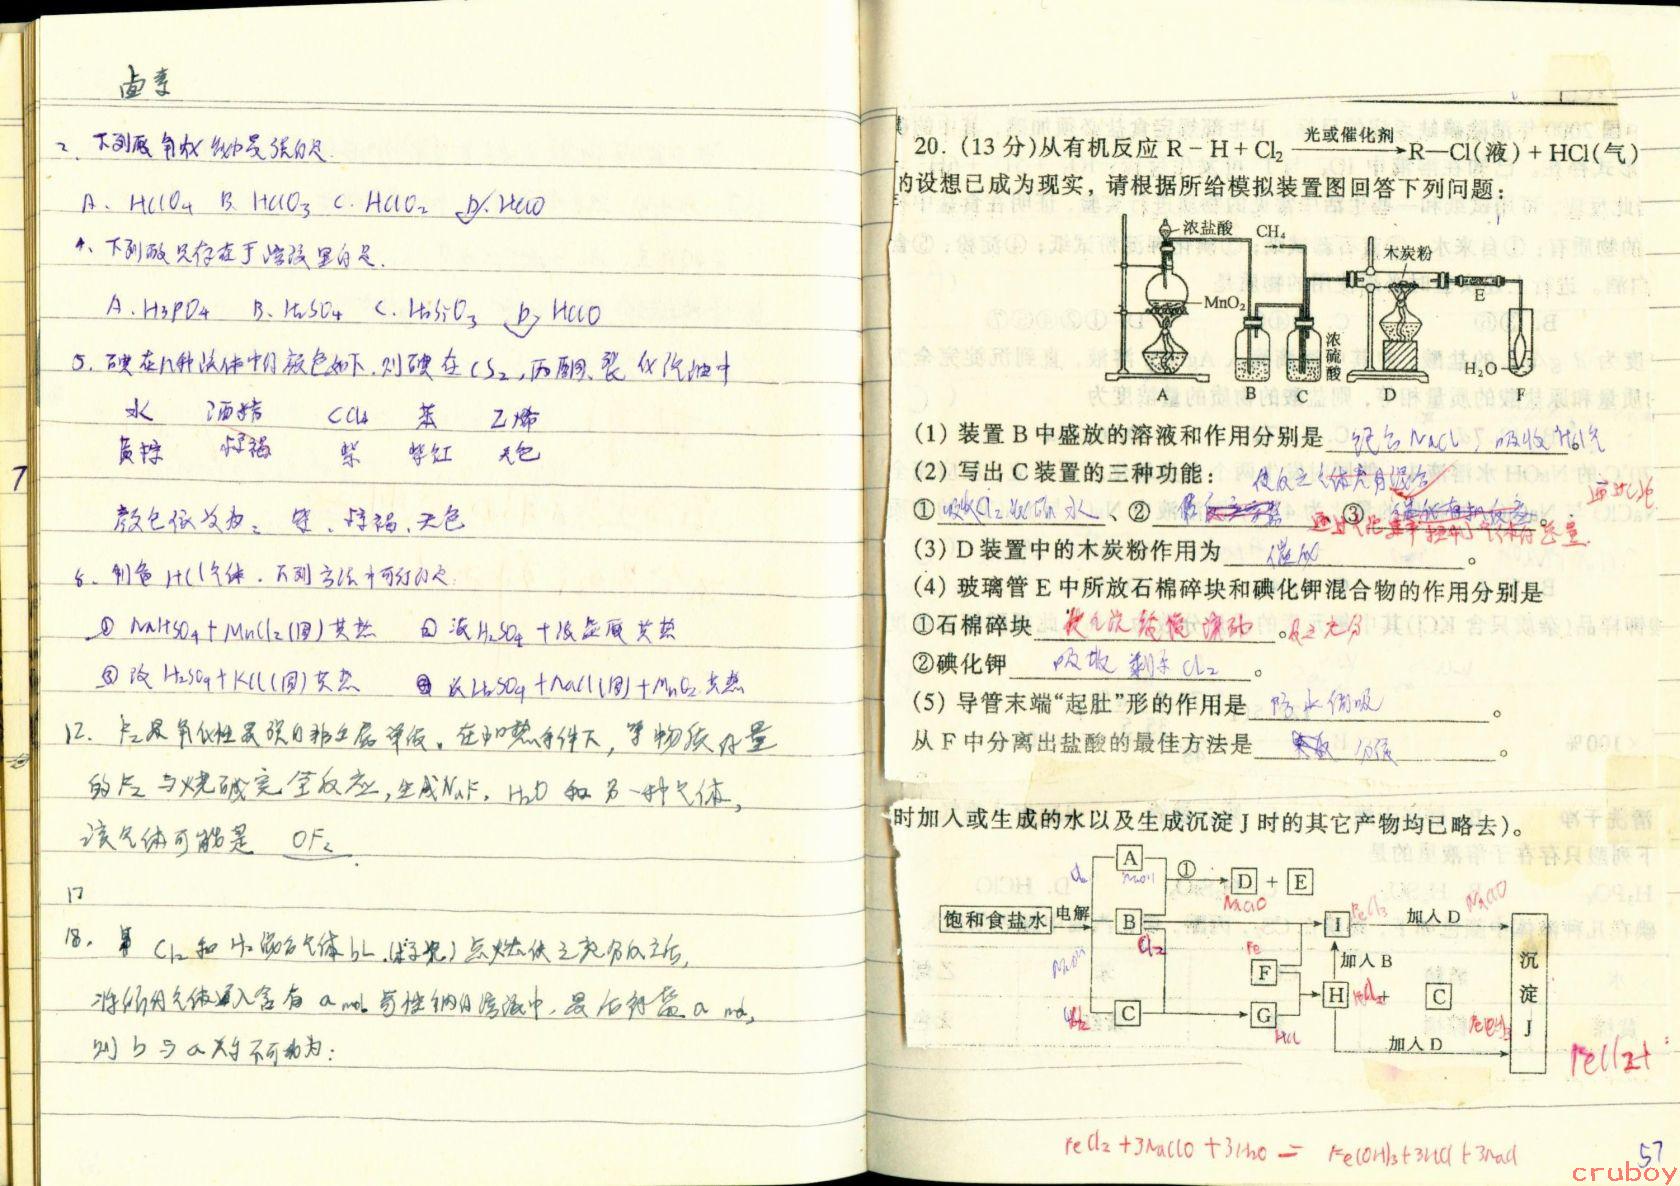 卤素
2、下列酸氧化能力最强的是.
A. HClO4 B. HClO3 C. HClO2 D. HClO
4、下列酸只存在于溶液里的是.
A. H3PO4 B. H2SO4 C. H2SiO3 D. HClO
5、碘在几种液体中的颜色如下.则碘在CS2,丙酮、裂化汽油中
水 酒精 CCl4 苯 乙烯
黄棕 棕褐 紫 紫红 无色
颜色依次为: 紫、棕褐、无色
6、制备HCl气体.下列方法中可行的是.
① NaHSO4+MnCl2(固)共热 ② 浓H2SO4+浓盐酸共热
③ 浓H2SO4+KCl(固)共热 ④ 浓H2SO4+NaCl(固)+MnO2共热
12. F2是氧化性最强的非金属单质。在加热条件下,等物质的量
的F2与烧碱完全反应,生成NaF、H2O和另一种气体,
该气体可能是 OF2
17
18. Cl2和H2混合气体bL(标况)点燃使之充分反应后,
将所得气体通入含有a mol 苛性钠的溶液中,最后符盐a mol,
则b与a关系不可能为:
20. (13分)从有机反应 R-H+Cl2 光或催化剂→ R—Cl(液)+HCl(气)
的设想已成为现实,请根据所给模拟装置图回答下列问题:
浓盐酸 CH4
木炭粉
MnO2 E
浓硫酸 H2O
A B C D F
(1) 装置B中盛放的溶液和作用分别是 饱和NaCl,吸收HCl气。
(2) 写出C装置的三种功能:
使反应气体充分混合
① 吸收Cl2状态水、② ③
(3) D装置中的木炭粉作用为 催化 。
(4) 玻璃管E中所放石棉碎块和碘化钾混合物的作用分别是
①石棉碎块 。反应充分
②碘化钾 吸收剩余Cl2 。
(5) 导管末端“起肚”形的作用是 防水倒吸 。
从F中分离出盐酸的最佳方法是 分液 。
时加入或生成的水以及生成沉淀J时的其它产物均已略去)。
A ① D + E
NaOH NaClO
饱和食盐水 电解 B I FeCl3 加入D NaClO
Cl2 Fe
NaOH F 加入B
C G H + C
H2 HCl
加入D
沉淀J
FeCl2+
FeCl2+3NaClO+3H2O = Fe(OH)3+3HCl+3NaCl
57
cruboy
7